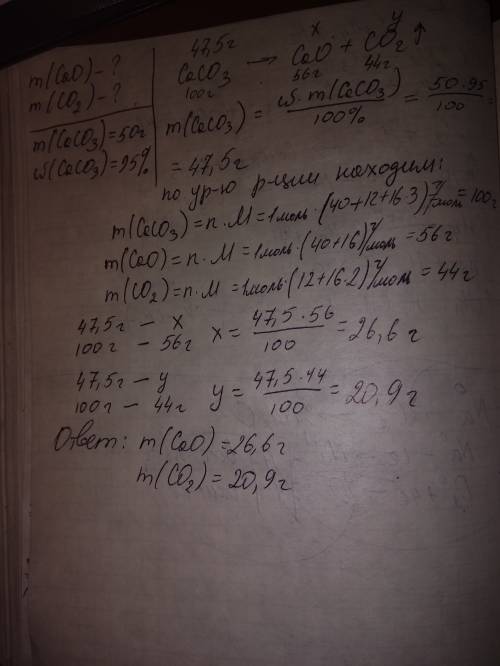 m(CaO) - ?
m(CO₂) - ?
m(CaCO₃) = 50г
ω(CaCO₃) = 95%
47,5г x y
CaCO₃ → CaO + CO₂↑
100г 56г 44г
m(CaCO₃) = ω·m(CaCO₃)/100% = 50·95/100 =
= 47,5г
по ур-ю р-ции находим:
m(CaCO₃) = n·M = 1моль·(40+12+16·3) г/моль = 100г
m(CaO) = n·M = 1моль·(40+16) г/моль = 56г
m(CO₂) = n·M = 1моль·(12+16·2) г/моль = 44г
47,5г - x
100г - 56г x = 47,5·56/100 = 26,6 г
47,5г - y
100г - 44г y = 47,5·44/100 = 20,9г
Ответ: m(CaO) = 26,6г
m(CO₂) = 20,9г